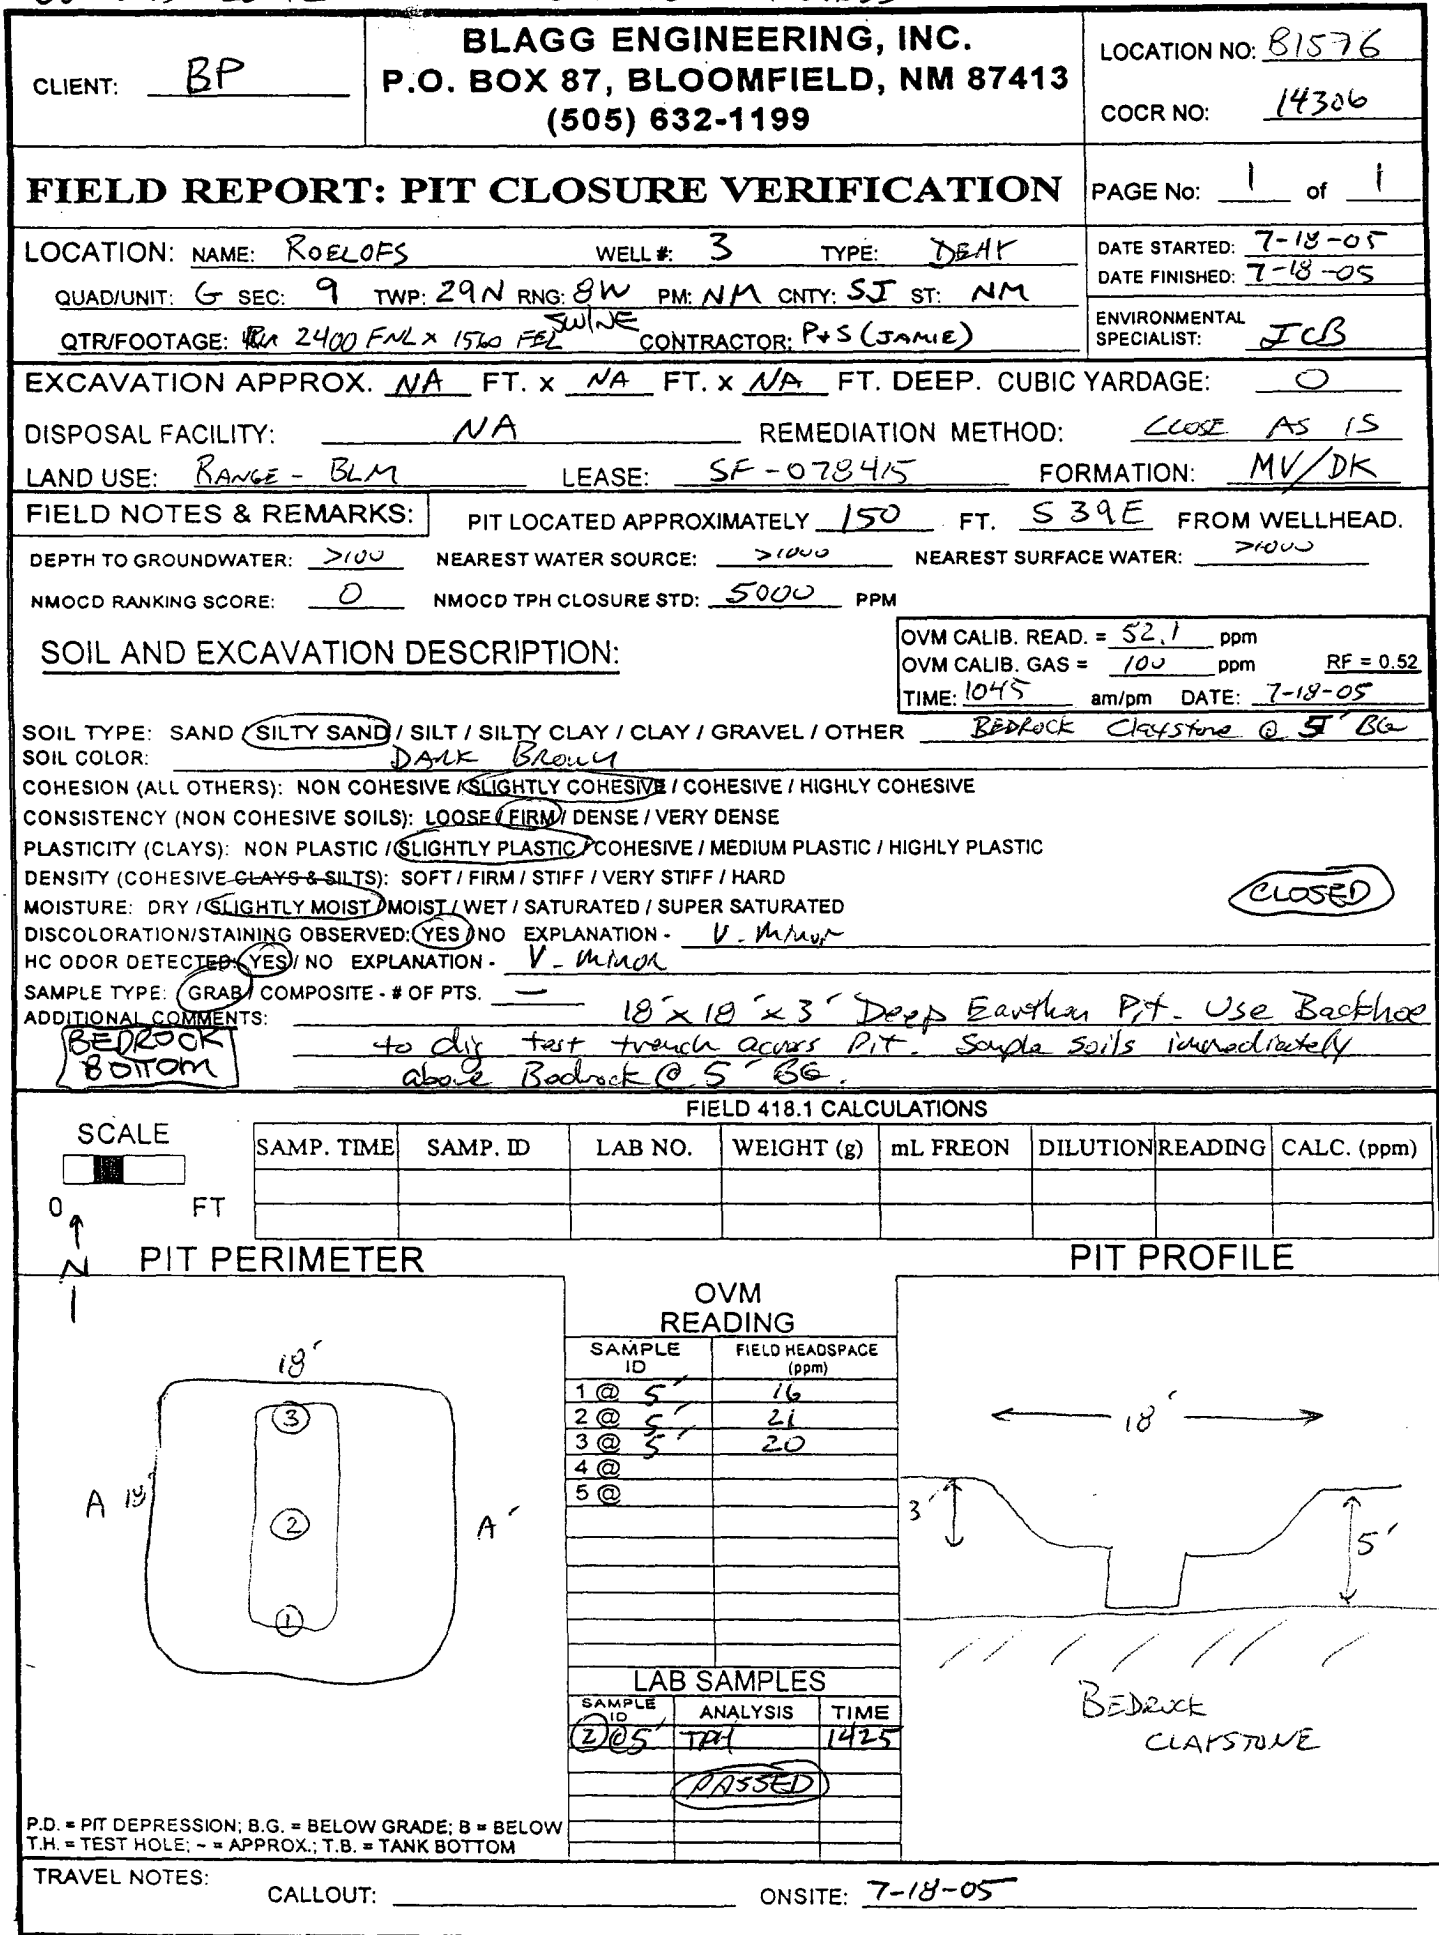 BLAGG ENGINEERING, INC.
P.O. BOX 87, BLOOMFIELD, NM 87413
(505) 632-1199
CLIENT: BP
LOCATION NO: B1576
COCR NO: 14306
FIELD REPORT: PIT CLOSURE VERIFICATION
PAGE No: 1 of 1
LOCATION: NAME: ROELOFS WELL #: 3 TYPE: DEHY
DATE STARTED: 7-18-05
DATE FINISHED: 7-18-05
QUAD/UNIT: G SEC: 9 TWP: 29N RNG: 8W PM: NM CNTY: SJ ST: NM
QTR/FOOTAGE: 2400 FNL x 1560 FEL SW/NE CONTRACTOR: P+S (JAMIE)
ENVIRONMENTAL SPECIALIST: JCB
EXCAVATION APPROX. NA FT. x NA FT. x NA FT. DEEP. CUBIC YARDAGE: 0
DISPOSAL FACILITY: NA REMEDIATION METHOD: CLOSE AS IS
LAND USE: RANGE - BLM LEASE: SF-078415 FORMATION: MV/DK
FIELD NOTES & REMARKS: PIT LOCATED APPROXIMATELY 150 FT. S39E FROM WELLHEAD.
DEPTH TO GROUNDWATER: >100 NEAREST WATER SOURCE: >1000 NEAREST SURFACE WATER: >1000
NMOCD RANKING SCORE: 0 NMOCD TPH CLOSURE STD: 5000 PPM
SOIL AND EXCAVATION DESCRIPTION:
OVM CALIB. READ. = 52.1 ppm
OVM CALIB. GAS = 100 ppm RF = 0.52
TIME: 1045 am/pm DATE: 7-18-05
SOIL TYPE: SAND / SILTY SAND / SILT / SILTY CLAY / CLAY / GRAVEL / OTHER BEDROCK Claystone @ 5' BG
SOIL COLOR: DARK BROWN
COHESION (ALL OTHERS): NON COHESIVE / SLIGHTLY COHESIVE / COHESIVE / HIGHLY COHESIVE
CONSISTENCY (NON COHESIVE SOILS): LOOSE / FIRM / DENSE / VERY DENSE
PLASTICITY (CLAYS): NON PLASTIC / SLIGHTLY PLASTIC / COHESIVE / MEDIUM PLASTIC / HIGHLY PLASTIC
DENSITY (COHESIVE CLAYS & SILTS): SOFT / FIRM / STIFF / VERY STIFF / HARD
MOISTURE: DRY / SLIGHTLY MOIST / MOIST / WET / SATURATED / SUPER SATURATED
CLOSED
DISCOLORATION/STAINING OBSERVED: YES / NO EXPLANATION - V. Minor
HC ODOR DETECTED: YES / NO EXPLANATION - V. MINOR
SAMPLE TYPE: GRAB / COMPOSITE - # OF PTS. —
ADDITIONAL COMMENTS: 18' x 18' x 3' Deep Earthen Pit. Use Backhoe
to dig test trench across Pit. Sample soils immediately
above Bedrock @ 5' BG.
BEDROCK
BOTTOM
FIELD 418.1 CALCULATIONS
SCALE
0 FT
SAMP. TIME SAMP. ID LAB NO. WEIGHT (g) mL FREON DILUTION READING CALC. (ppm)
N
PIT PERIMETER
PIT PROFILE
OVM
READING
SAMPLE ID FIELD HEADSPACE (ppm)
1 @ 5' 16
2 @ 5' 21
3 @ 5' 20
4 @
5 @
18'
3
A 18'
2
A'
1
18'
3'
5'
BEDROCK
CLAYSTONE
LAB SAMPLES
SAMPLE ID ANALYSIS TIME
2 @ 5' TPH 1425
PASSED
P.D. = PIT DEPRESSION; B.G. = BELOW GRADE; B = BELOW
T.H. = TEST HOLE; ~ = APPROX.; T.B. = TANK BOTTOM
TRAVEL NOTES:
CALLOUT: ONSITE: 7-18-05